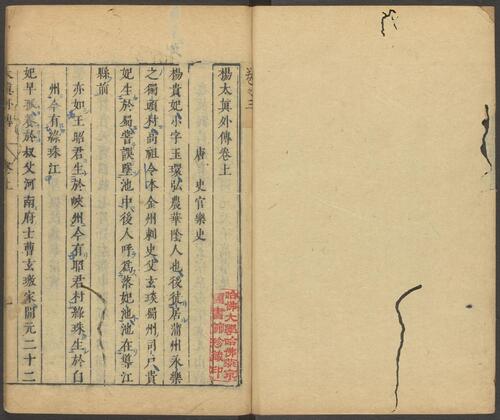 楊太真外傳卷上
唐 史官樂史
楊貴妃小字玉環弘農華陰人也後徙居蒲州永樂
之獨頭村高祖令本金州刺史父玄琰蜀州司戶貴
妃生於蜀嘗誤墜池中後人呼爲落妃池池在導江
縣前
亦如王昭君生於峽州今有昭君村綠珠生於白
州今有綠珠江
妃早孤養於叔父河南府士曹玄璬家開元二十二
太真外傳
哈佛大學哈佛燕京
圖書館珍藏印